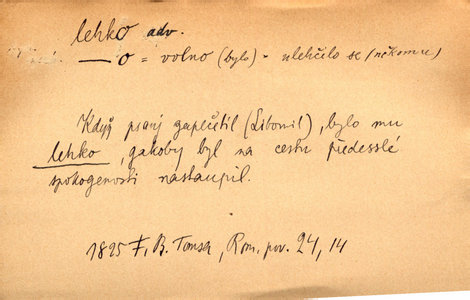 lehko adv.
—o = volno (bylo) - ulehčilo se (někomu)
Když psanj zapečetil (Libomil), bylo mu
lehko, gakoby byl na cestu předesslé
spokogenosti nastaupil.
1825 F. B. Tomsa, Rom. pov. 24, 14